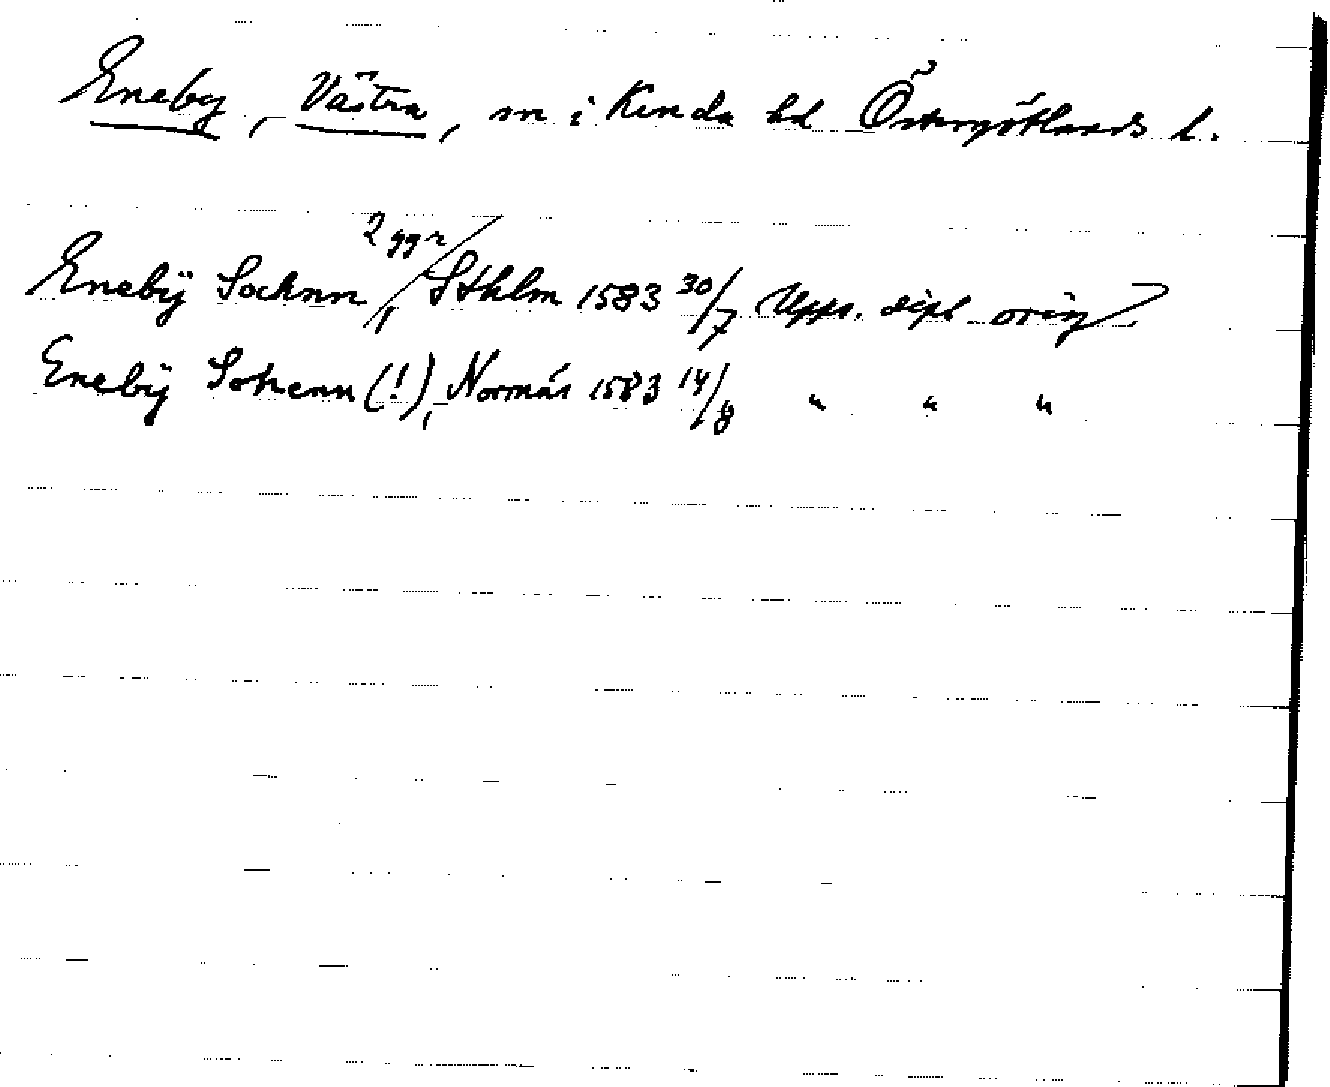 Eneby, Västra, sn i Kinda hd Östergötlands l.
2 ggr
Enebÿ Socknn, Sthlm 1583 30/7 Upps. dipl orig
Enebÿ Sohenn (!), Normás 1583 14/8 " " "